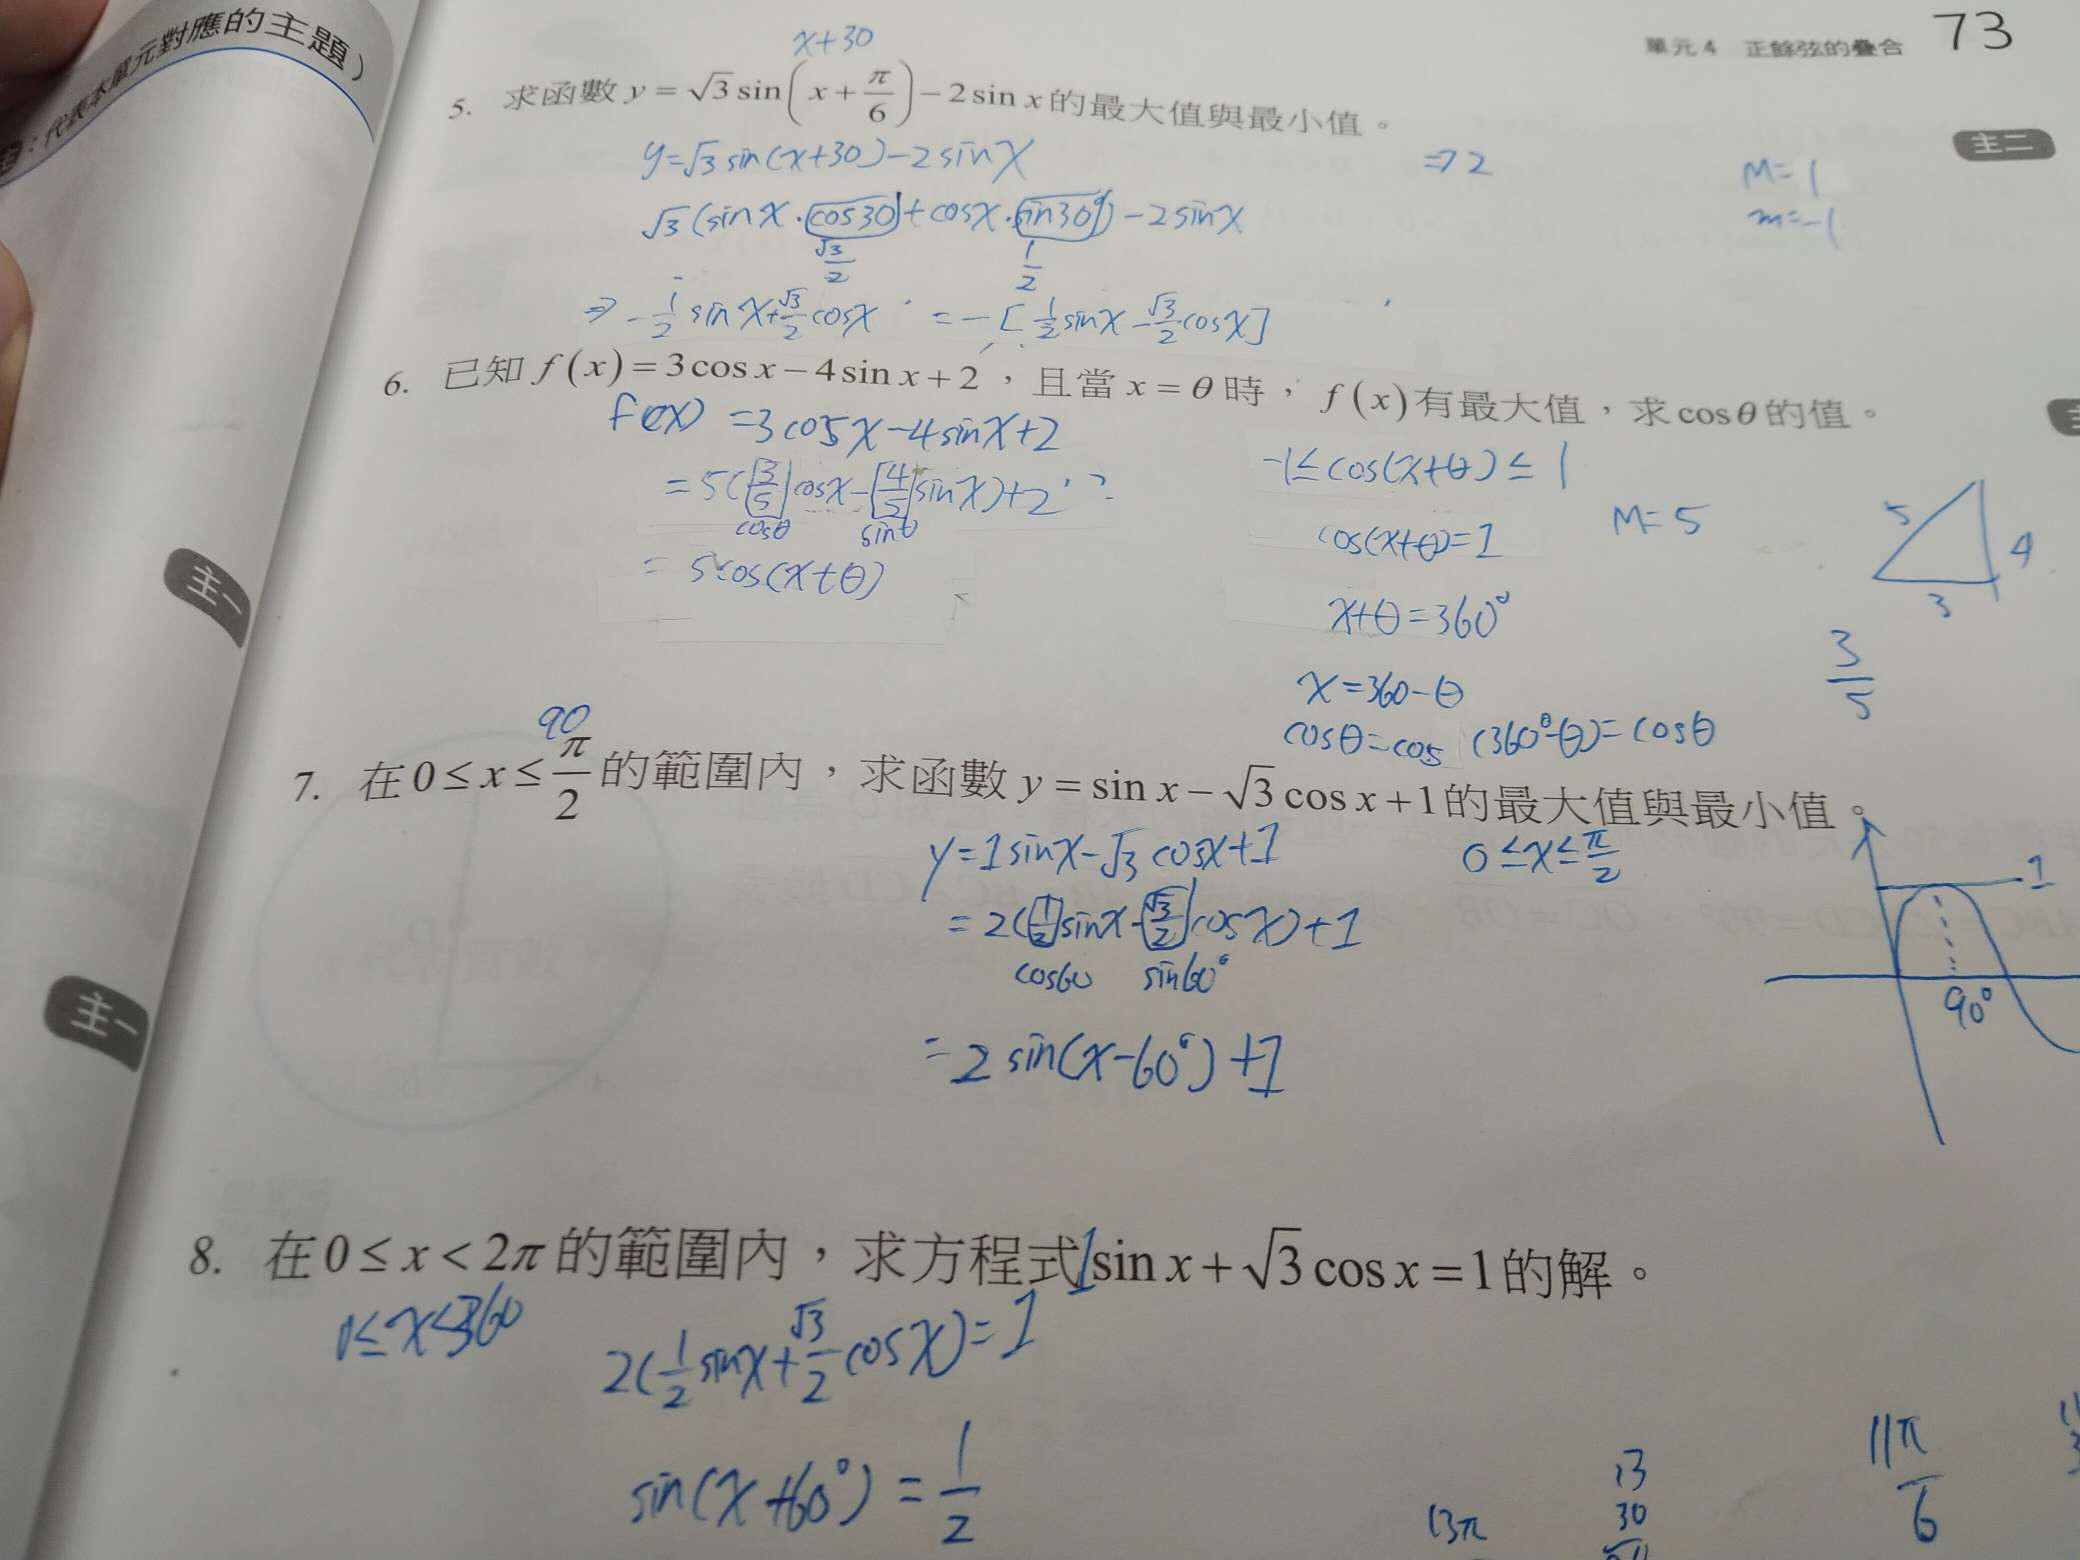 ：代表本單元對應的主題）
單元 4 正餘弦的疊合 73
x+30
5. 求函數 y = √3 sin(x + π/6) − 2 sin x 的最大值與最小值。
主二
y=√3 sin(x+30)−2sinx
⇒ 2
M= 1
m=-1
√3 (sinx·cos30°+cosx·sin30°)−2sinx
√3/2 1/2
⇒ −1/2 sinx+√3/2 cosx = −[1/2 sinx−√3/2 cosx]
6. 已知 f(x) = 3cos x − 4sin x + 2，且當 x = θ 時，f(x) 有最大值，求 cosθ 的值。
f(x) =3cosx−4sinx+2
=5(3/5 cosx−4/5 sinx)+2
cosθ sinθ
= 5cos(x+θ)
-1≤cos(x+θ)≤1
cos(x+θ)=1
M=5
x+θ=360°
x=360-θ
cosθ=cos (360°-θ)=cosθ
5 4
3
3/5
主一
90
7. 在 0 ≤ x ≤ π/2 的範圍內，求函數 y = sin x − √3 cos x + 1 的最大值與最小值。
y=1sinx−√3 cosx+1
0≤x≤π/2
=2(1/2 sinx−√3/2 cosx)+1
cos60 sin60°
=2 sin(x−60°)+1
1
90°
主一
8. 在 0 ≤ x < 2π 的範圍內，求方程式 1 sin x + √3 cos x = 1 的解。
0≤x<360
2(1/2 sinx+√3/2 cosx)=1
sin(x+60°) = 1/2
13π
13
30
11π/6